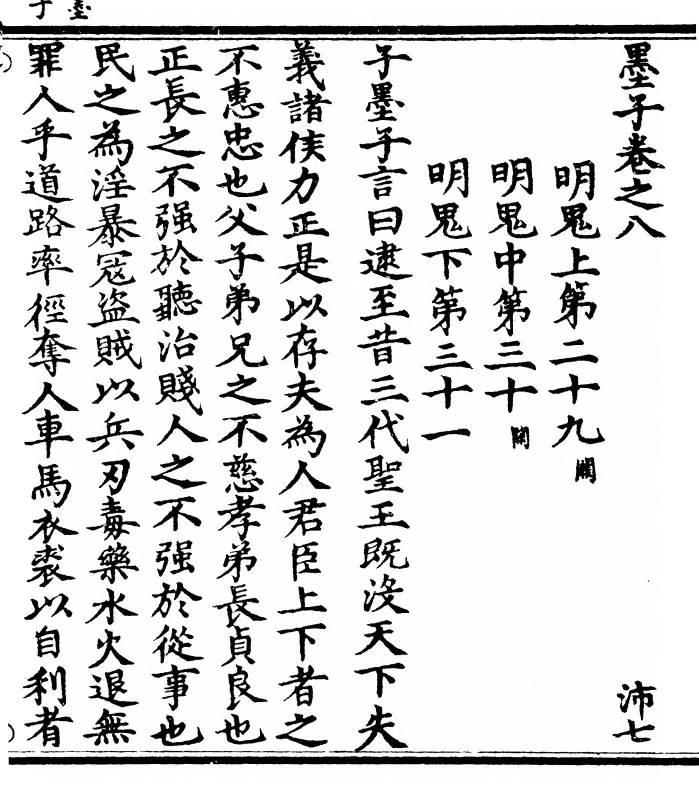 墨子卷之八　沛七
明鬼上第二十九　闕
明鬼中第三十　闕
明鬼下第三十一
子墨子言曰逮至昔三代聖王既沒天下失
義諸侯力正是以存夫為人君臣上下者之
不惠忠也父子弟兄之不慈孝弟長貞良也
正長之不强於聽治賤人之不强於從事也
民之為淫暴寇盜賊以兵刃毒藥水火退無
罪人乎道路率徑奪人車馬衣裘以自利者
墨子